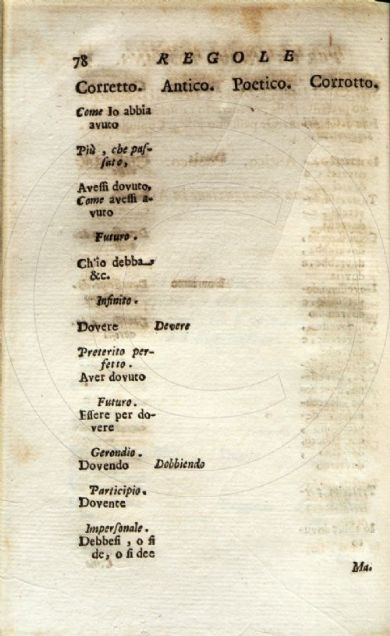 78 REGOLE
Corretto. Antico. Poetico. Corrotto.
Come Io abbia
avuto
Più, che pas-
sato,
Avessi dovuto,
Come avessi a-
vuto
Futuro.
Ch'io debba
&c.
Infinito.
Dovere Devere
Preterito per-
fetto.
Aver dovuto
Futuro.
Essere per do-
vere
Gerondio.
Dovendo Dobbiendo
Participio.
Dovente
Impersonale.
Debbesi, o si
de, o si dee
Ma.